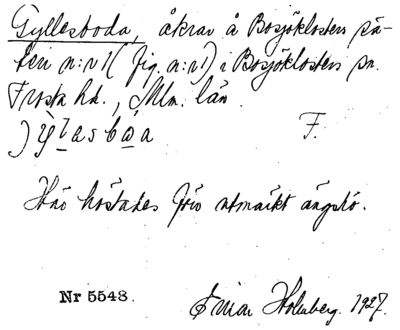 Gyllesboda, åkrar å Bosjöklosters sä-
teri n:r 1 (fig. n:r 1) i Bosjöklosters sn.
Frosta hd., Mlm. län.
F.
Här höstades förr utmärkt ängshö.
Nr 5548.
Einar Holmberg. 1927.